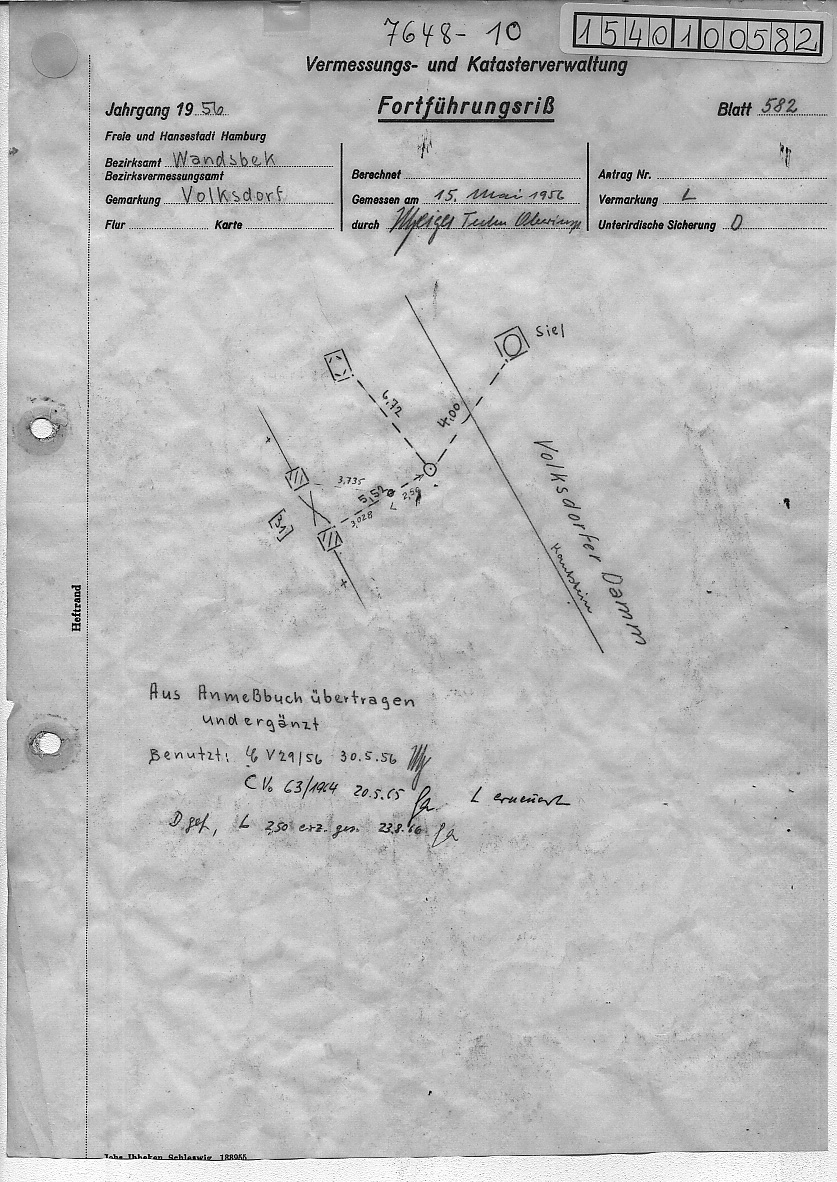 7648-10
1540100582
Vermessungs- und Katasterverwaltung
Jahrgang 1956
Fortführungsriß
Blatt 582
Freie und Hansestadt Hamburg
Bezirksamt Wandsbek
Bezirksvermessungsamt
Berechnet
Antrag Nr.
Gemarkung Volksdorf
Gemessen am 15. Mai 1956
Vermarkung L
Flur Karte
durch
Unterirdische Sicherung D
Siel
6,72
4.00
3,735
5,52
2,50
L
3,028
31
Volksdorfer Damm
Kantstein
Heftrand
Aus Anmeßbuch übertragen
und ergänzt
Benutzt: V 29/56 30.5.56
63/1964 20.5.65 L erneuert
D gef, L 2,50 erz. ges. 23.8.66